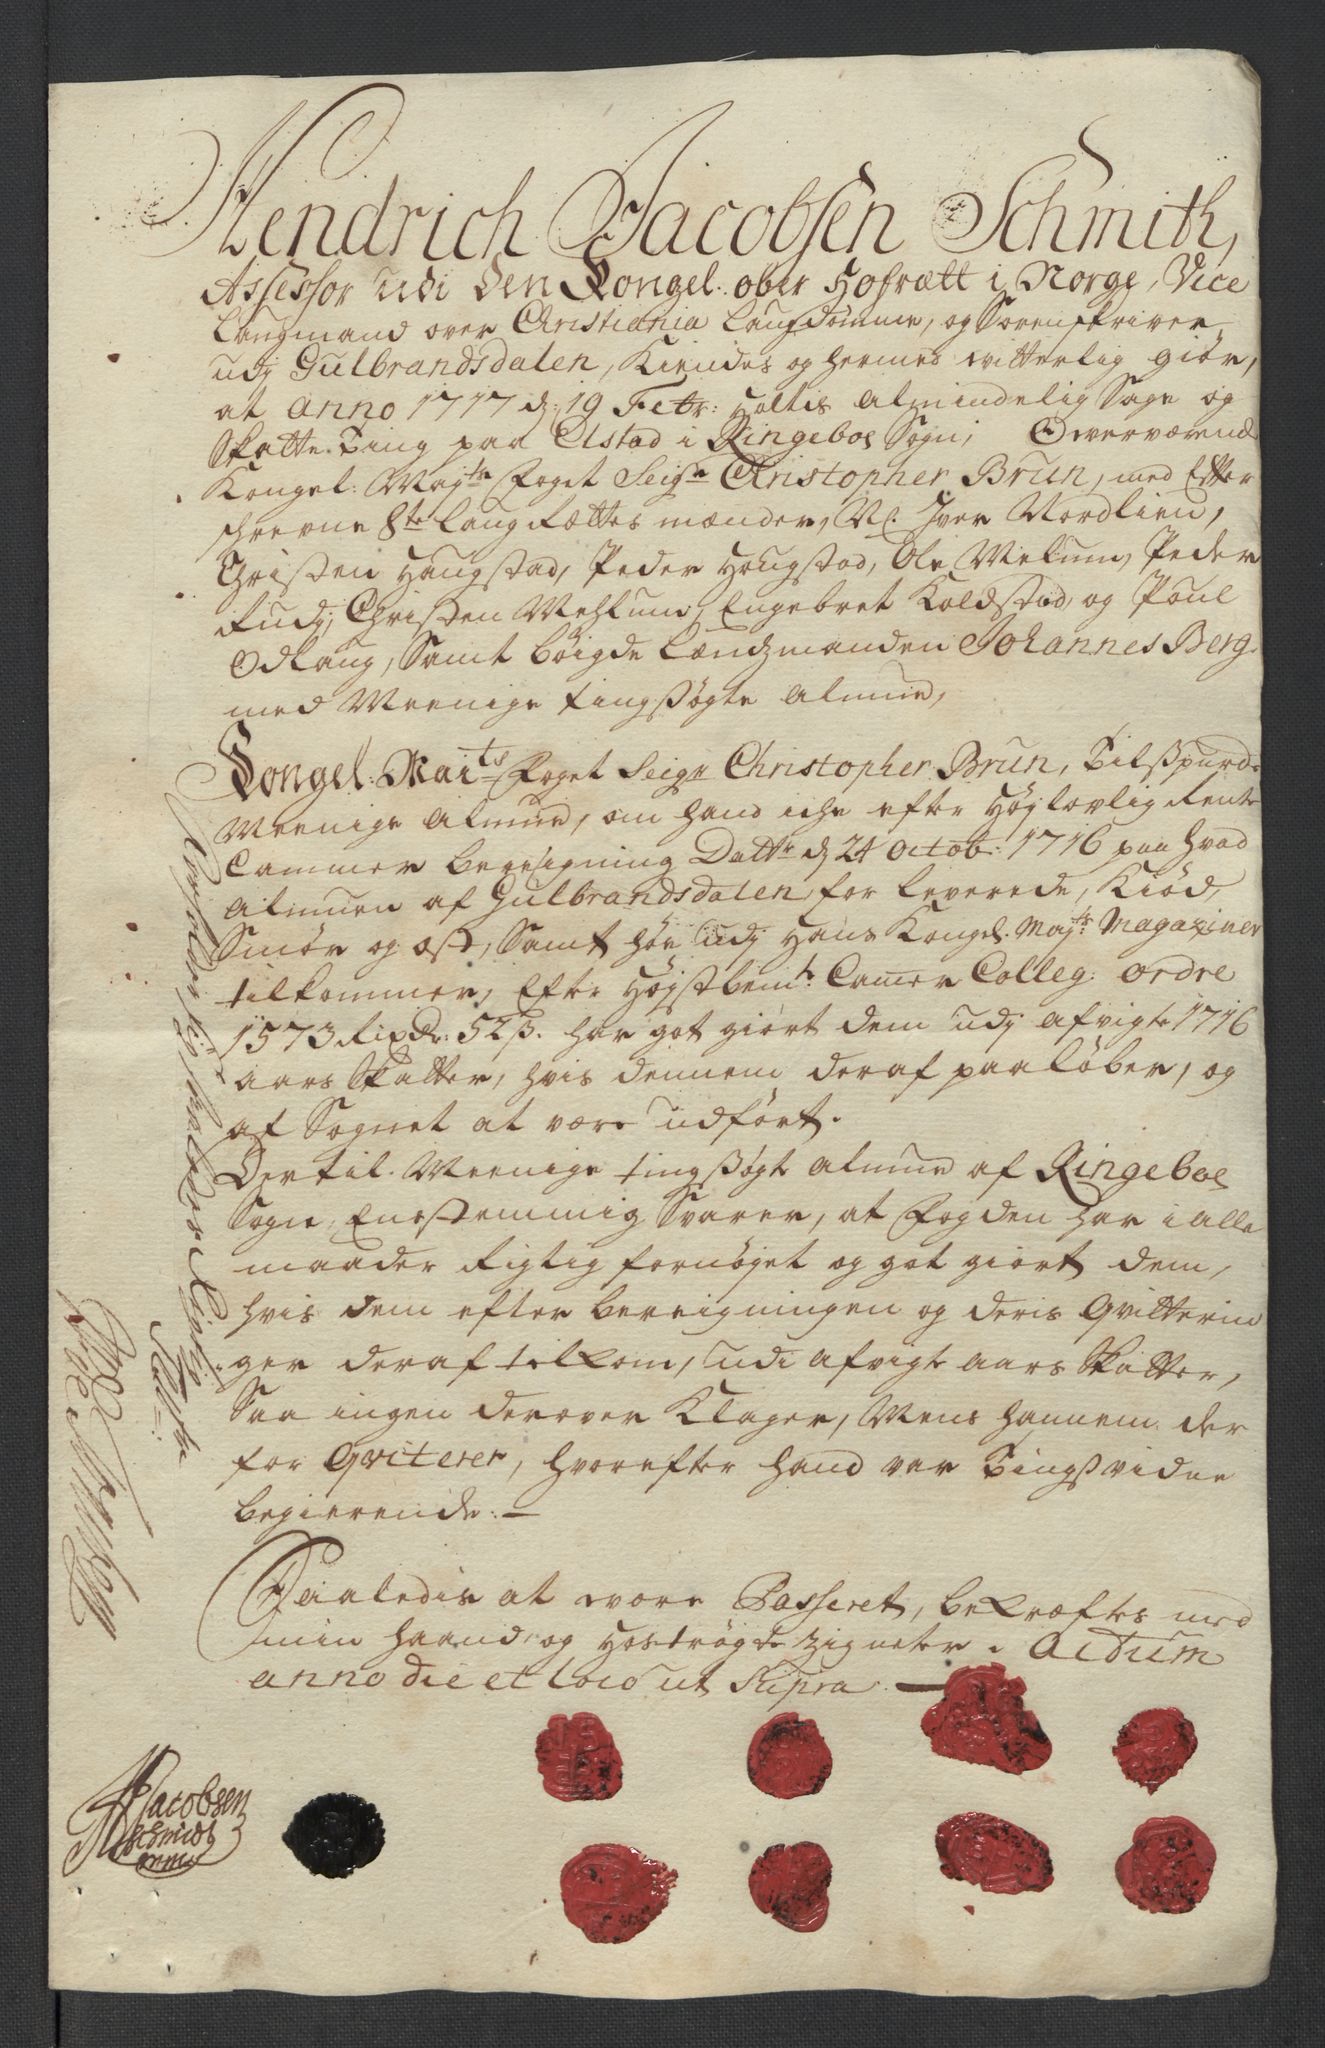 Hendrich Jacobsen Schmith,
Assessor udi den Kongel. ober Hofrætt i Norge, Vice
Laugmand over Christiania Laugdømme, og Sorenskriver
udj Gulbrandsdalen, Kiendes og hermed witterlig giör,
at anno 1717 d: 19 Febr: holtis almindelig Sage og
Skatte-Ting paa Elstad i Ringeboe Sogn, Overværende
Kongel: Maj:ts Foget Seigr Christopher Brun, med Efter
schrevne 8te Laug Rættes mænder, N. Iver Nordlien,
Christen Haugstad, Peder Hougstad, Ole Melum, Peder
Rudj, Christen Mehlum, Engebret Koldstad, og Poul
Odlaug, Samt böigde Lændzmanden Johannes Berg
med Meenige tingsögte almue,
Kongel: Mai:ts Foget Seigr Christopher Brun, Tilspurde
Meenige almue, om hand iche efter Höylovlig Rente
Cammer beregning Datt: d 24 Octob: 1716 paa hvad
almuen af Gulbrandsdalen for leverede, Kiöd,
Smör og ost, Samt höe udj Hans Kongel. Maj:ts Magaziner
tilkommer, Efter Höystbem:te Camer Colleg: ordre
1573 Rixdr: 52 s. har got giört dem udj afvigte 1716
aars Skatter, hvis dennem deraf paaløber, og
af Sognet at være udfört.
Dertil Meenige tingsögte almue af Ringeboe
Sogn, Eenstemmig Svarer, at Fogden har i alle
maader Rigtig fornöyet og got giort dem,
hvis dem efter beregningen og deris Qvitterin
ger deraf tilkom, udi afvigte aars Skatter,
Saa ingen derover Klager, Mens hannem der
for Qviterer, hvorefter hand var Tingsvidne
begierende.
Saaledis at være Passeret, bekræftes med
min haand og hoströgde zigneter. Actum
anno die et loco ut Supra.
HJacobsen
Schmidt